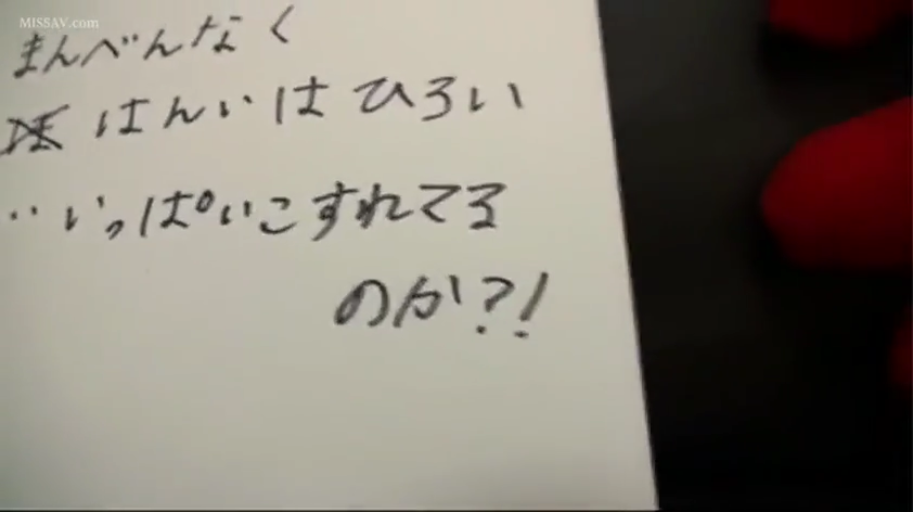 MISSAV.com
まんべんなく
はんいはひろい
‥いっぱいこすれてる
のか?!